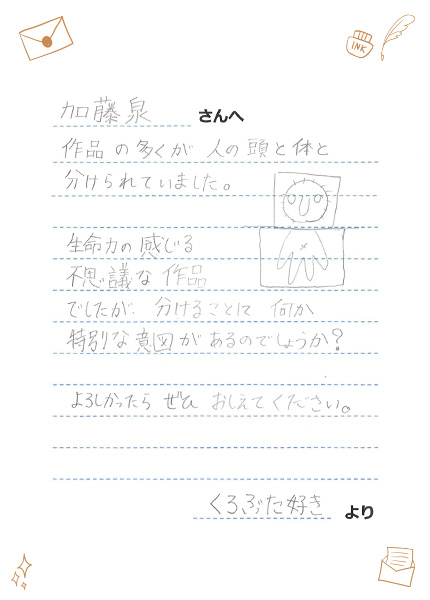 INK
加藤泉 さんへ
作品の多くが 人の頭と体と
分けられていました。
生命力の感じる
不思議な作品
でしたが 分けることに 何か
特別な意図があるのでしょうか?
よろしかったら ぜひ おしえてください。
くろぶた好き より